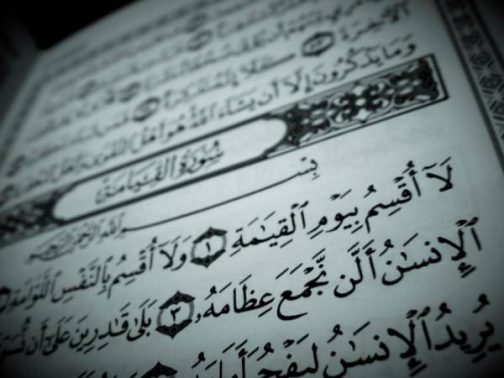 ٱلْأَخِرَةَ ٥٣ كَلَّآ إِنَّهُۥ تَذْكِرَةٌ
وَمَا يَذْكُرُونَ إِلَّآ أَن يَشَآءَ ٱللَّهُ هُوَ أَهْلُ ٱلتَّقْوَىٰ وَأَهْلُ
سُورَةُ القِيَامَةِ
بِسْمِ ٱللَّهِ ٱلرَّحْمَٰنِ ٱلرَّحِيمِ
لَآ أُقْسِمُ بِيَوْمِ ٱلْقِيَٰمَةِ ١ وَلَآ أُقْسِمُ بِٱلنَّفْسِ ٱللَّوَّامَةِ
ٱلْإِنسَٰنُ أَلَّن نَّجْمَعَ عِظَامَهُۥ ٣ بَلَىٰ قَٰدِرِينَ عَلَىٰٓ أَن نُّسَوِّيَ
يُرِيدُ ٱلْإِنسَٰنُ لِيَفْجُرَ أَمَامَهُۥ